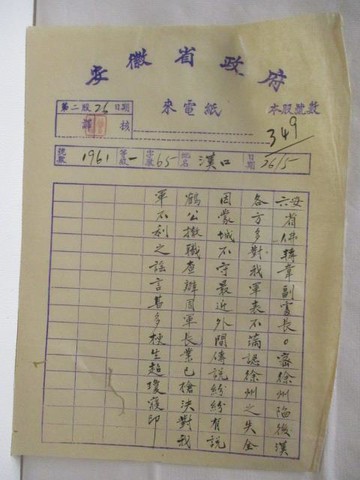 安徽省政府
第二股26日期
來電紙
本股號數
譯
核
349
號數 1961 等級 一 字數 65 地名 漢口 日期 26/5
六安
省保轉章副處長〇密徐州陷後漢
各方多對我軍表不滿認徐州之失全
因蒙城不守最近外間傳說紛紛有說
鶴公撤職查辦周軍長業已槍決對我
軍不利之謠言甚多